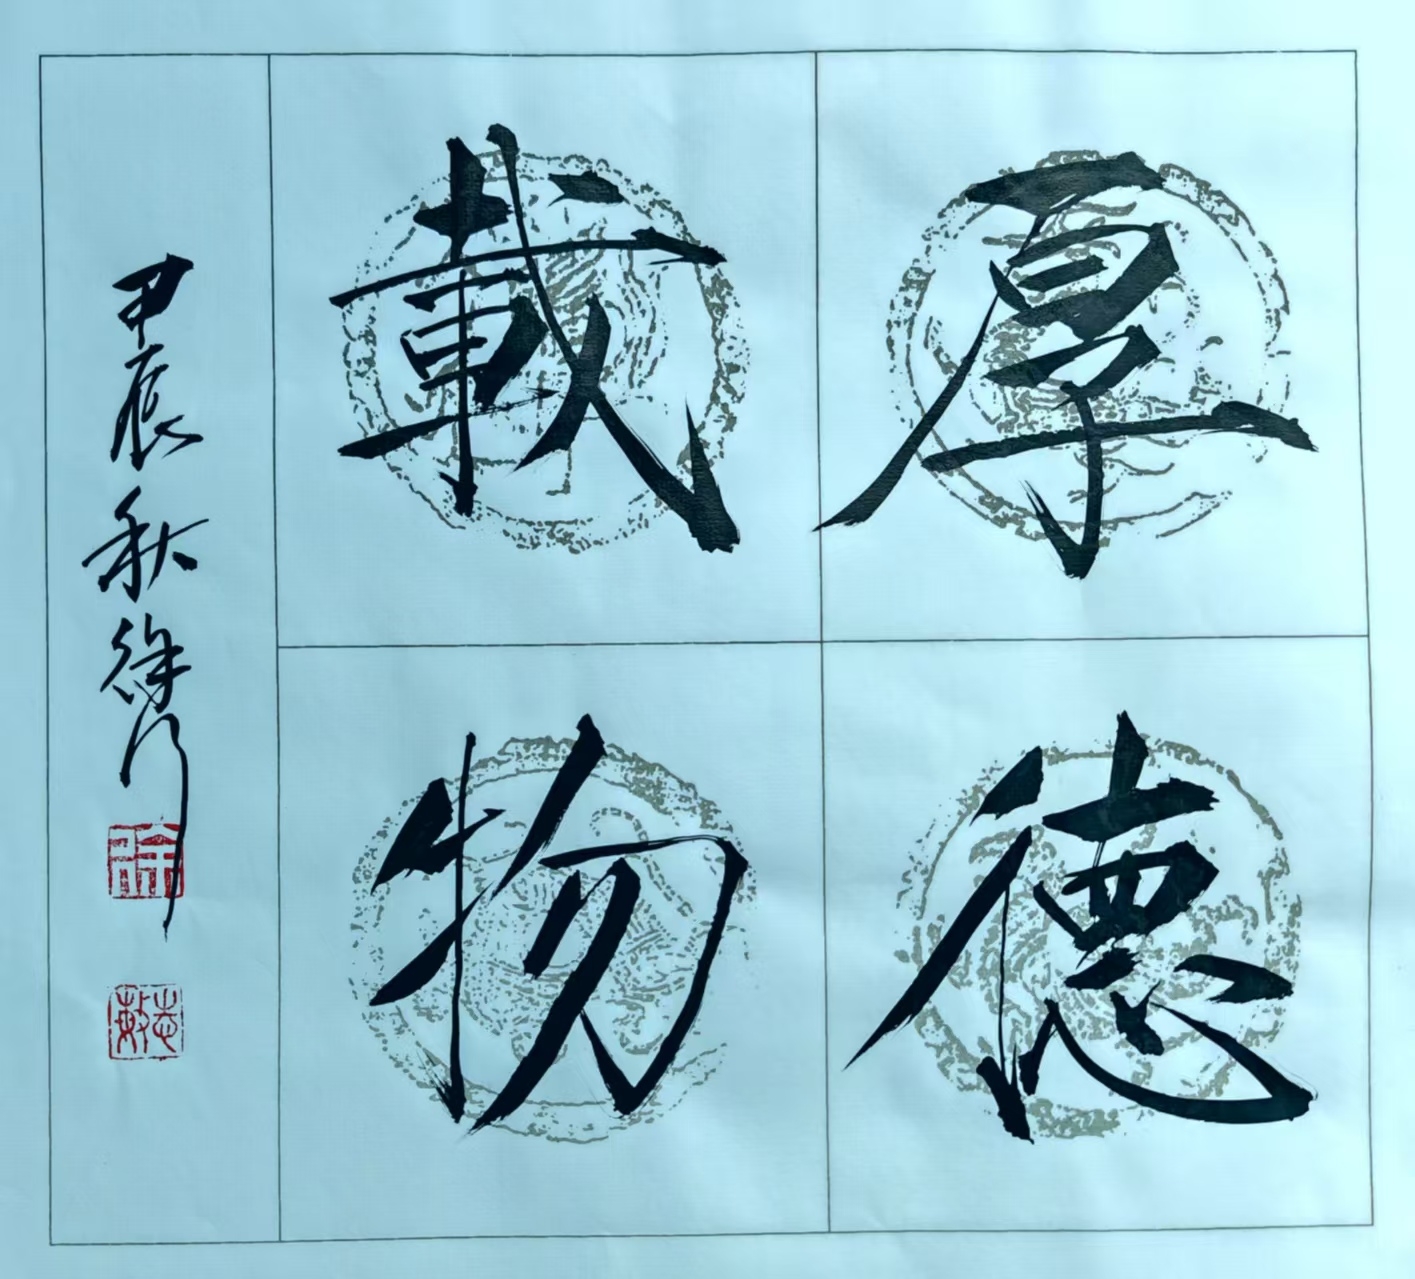 厚德
載物
甲辰秋徐
徐